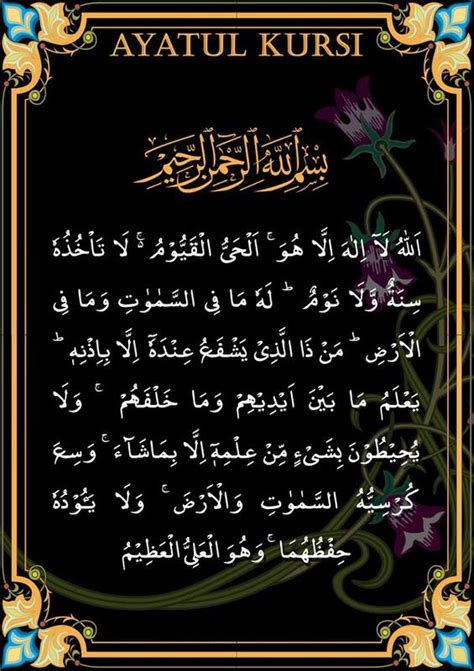 AYATUL KURSI
بِسْمِ اللهِ الرَّحْمٰنِ الرَّحِيْمِ
اَللّٰهُ لَآ اِلٰهَ اِلَّا هُوَ ۚ اَلْحَىُّ الْقَيُّوْمُ ۬ۚ لَا تَاْخُذُهٗ
سِنَةٌ وَّلَا نَوْمٌ ؕ لَهٗ مَا فِى السَّمٰوٰتِ وَمَا فِى
الْاَرْضِ ؕ مَنْ ذَا الَّذِىْ يَشْفَعُ عِنْدَهٗۤ اِلَّا بِاِذْنِهٖ ؕ
يَعْلَمُ مَا بَيْنَ اَيْدِيْهِمْ وَمَا خَلْفَهُمْ ۚ وَلَا
يُحِيْطُوْنَ بِشَىْءٍ مِّنْ عِلْمِهٖۤ اِلَّا بِمَاشَآءَ ۚ وَسِعَ
كُرْسِيُّهُ السَّمٰوٰتِ وَالْاَرْضَ ۚ وَلَا يَـُٔوْدُهٗ
حِفْظُهُمَا ۚ وَهُوَ الْعَلِىُّ الْعَظِيْمُ